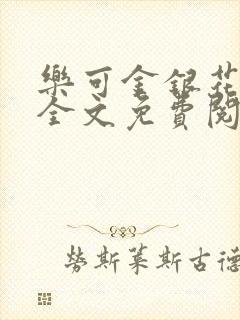 樂可金銀花
全文免費閱
勞斯萊斯古德